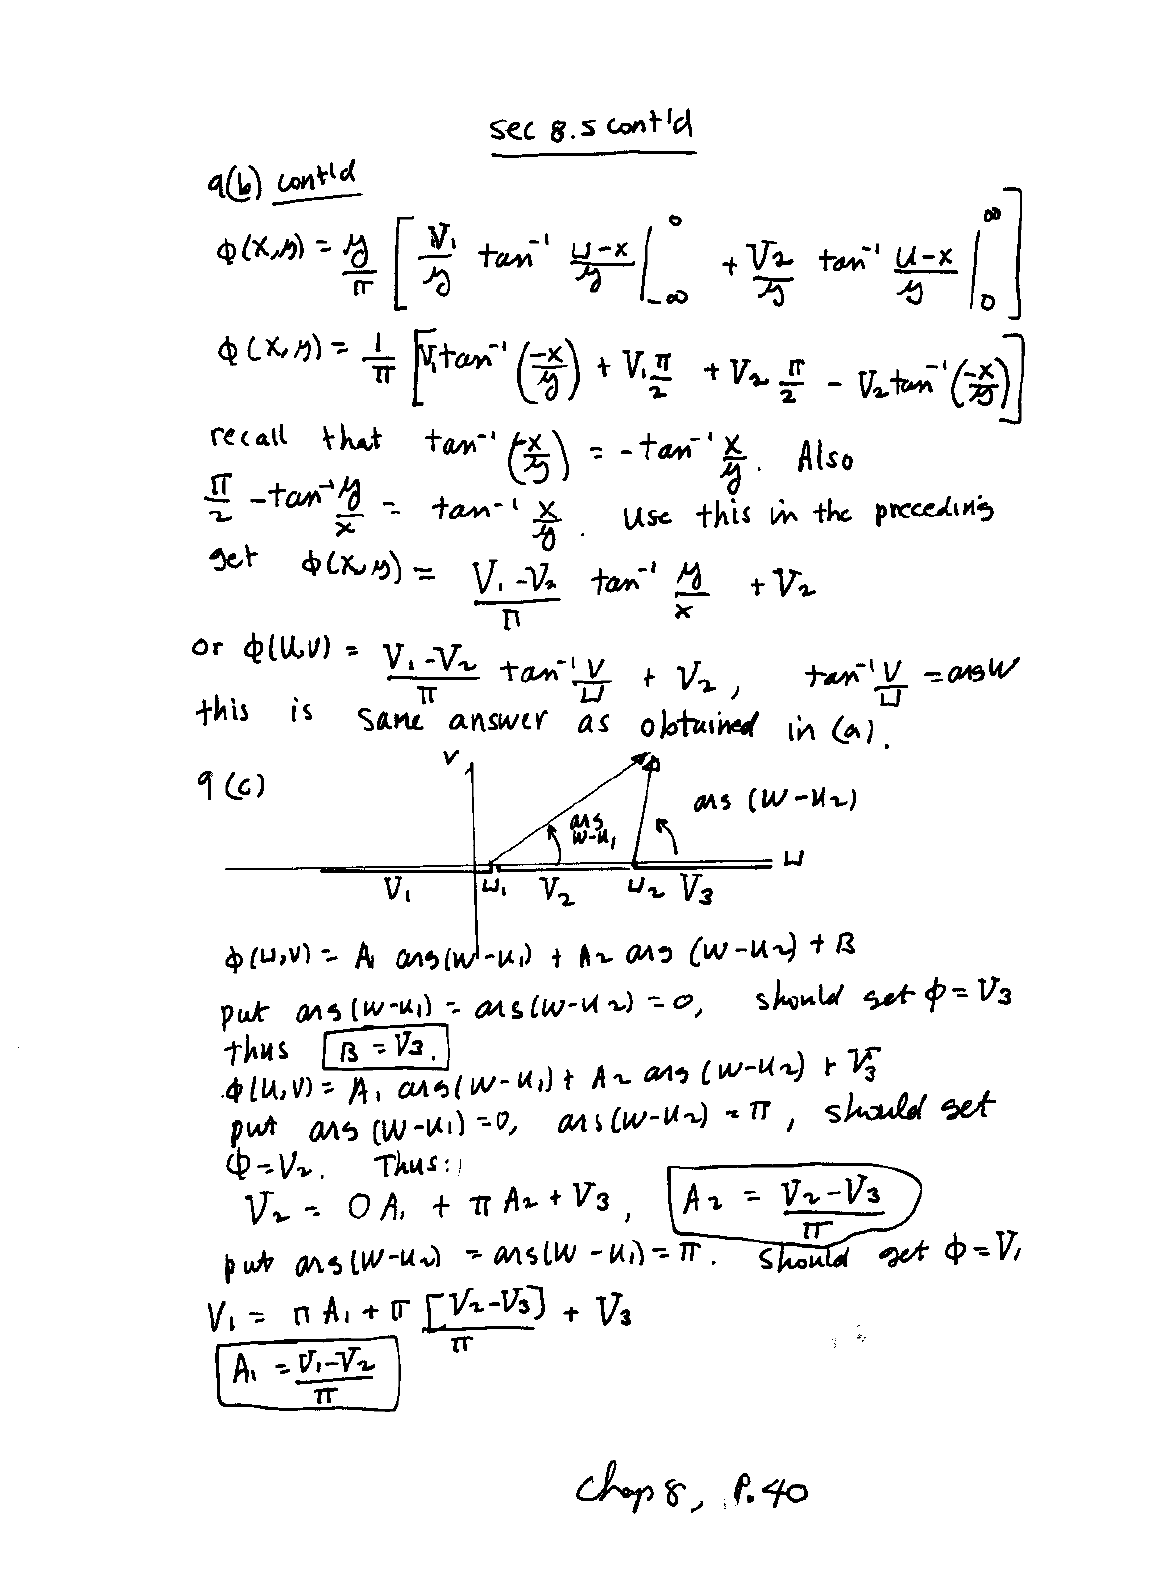 sec 8.5 cont'd
9(b) cont'd
φ(x,y) = y/π [ V₁/y tan⁻¹ (u-x)/y |₋∞⁰ + V₂/y tan⁻¹ (u-x)/y |₀^∞ ]
φ(x,y) = 1/π [ V₁ tan⁻¹ (-x/y) + V₁ π/2 + V₂ π/2 - V₂ tan⁻¹ (-x/y) ]
recall that tan⁻¹ (-x/y) = -tan⁻¹ x/y. Also
π/2 - tan⁻¹ y/x = tan⁻¹ x/y. Use this in the preceding
get φ(x,y) = (V₁-V₂)/π tan⁻¹ y/x + V₂
or φ(u,v) = (V₁-V₂)/π tan⁻¹ v/u + V₂, tan⁻¹ v/u = arg w
this is same answer as obtained in (a).
9(c)
v
arg (w-u₂)
arg w-u₁
u
V₁ u₁ V₂ u₂ V₃
φ(u,v) = A₁ arg(w-u₁) + A₂ arg (w-u₂) + B
put arg(w-u₁) = arg(w-u₂) = 0, should get φ = V₃
thus B = V₃.
φ(u,v) = A₁ arg(w-u₁) + A₂ arg (w-u₂) + V₃
put arg (w-u₁) = 0, arg(w-u₂) = π, should get
φ = V₂. Thus:
V₂ = 0 A₁ + π A₂ + V₃, A₂ = (V₂-V₃)/π
put arg(w-u₂) = arg(w-u₁) = π. Should get φ = V₁
V₁ = π A₁ + π [V₂-V₃]/π + V₃
A₁ = (V₁-V₂)/π
Chap 8, P. 40